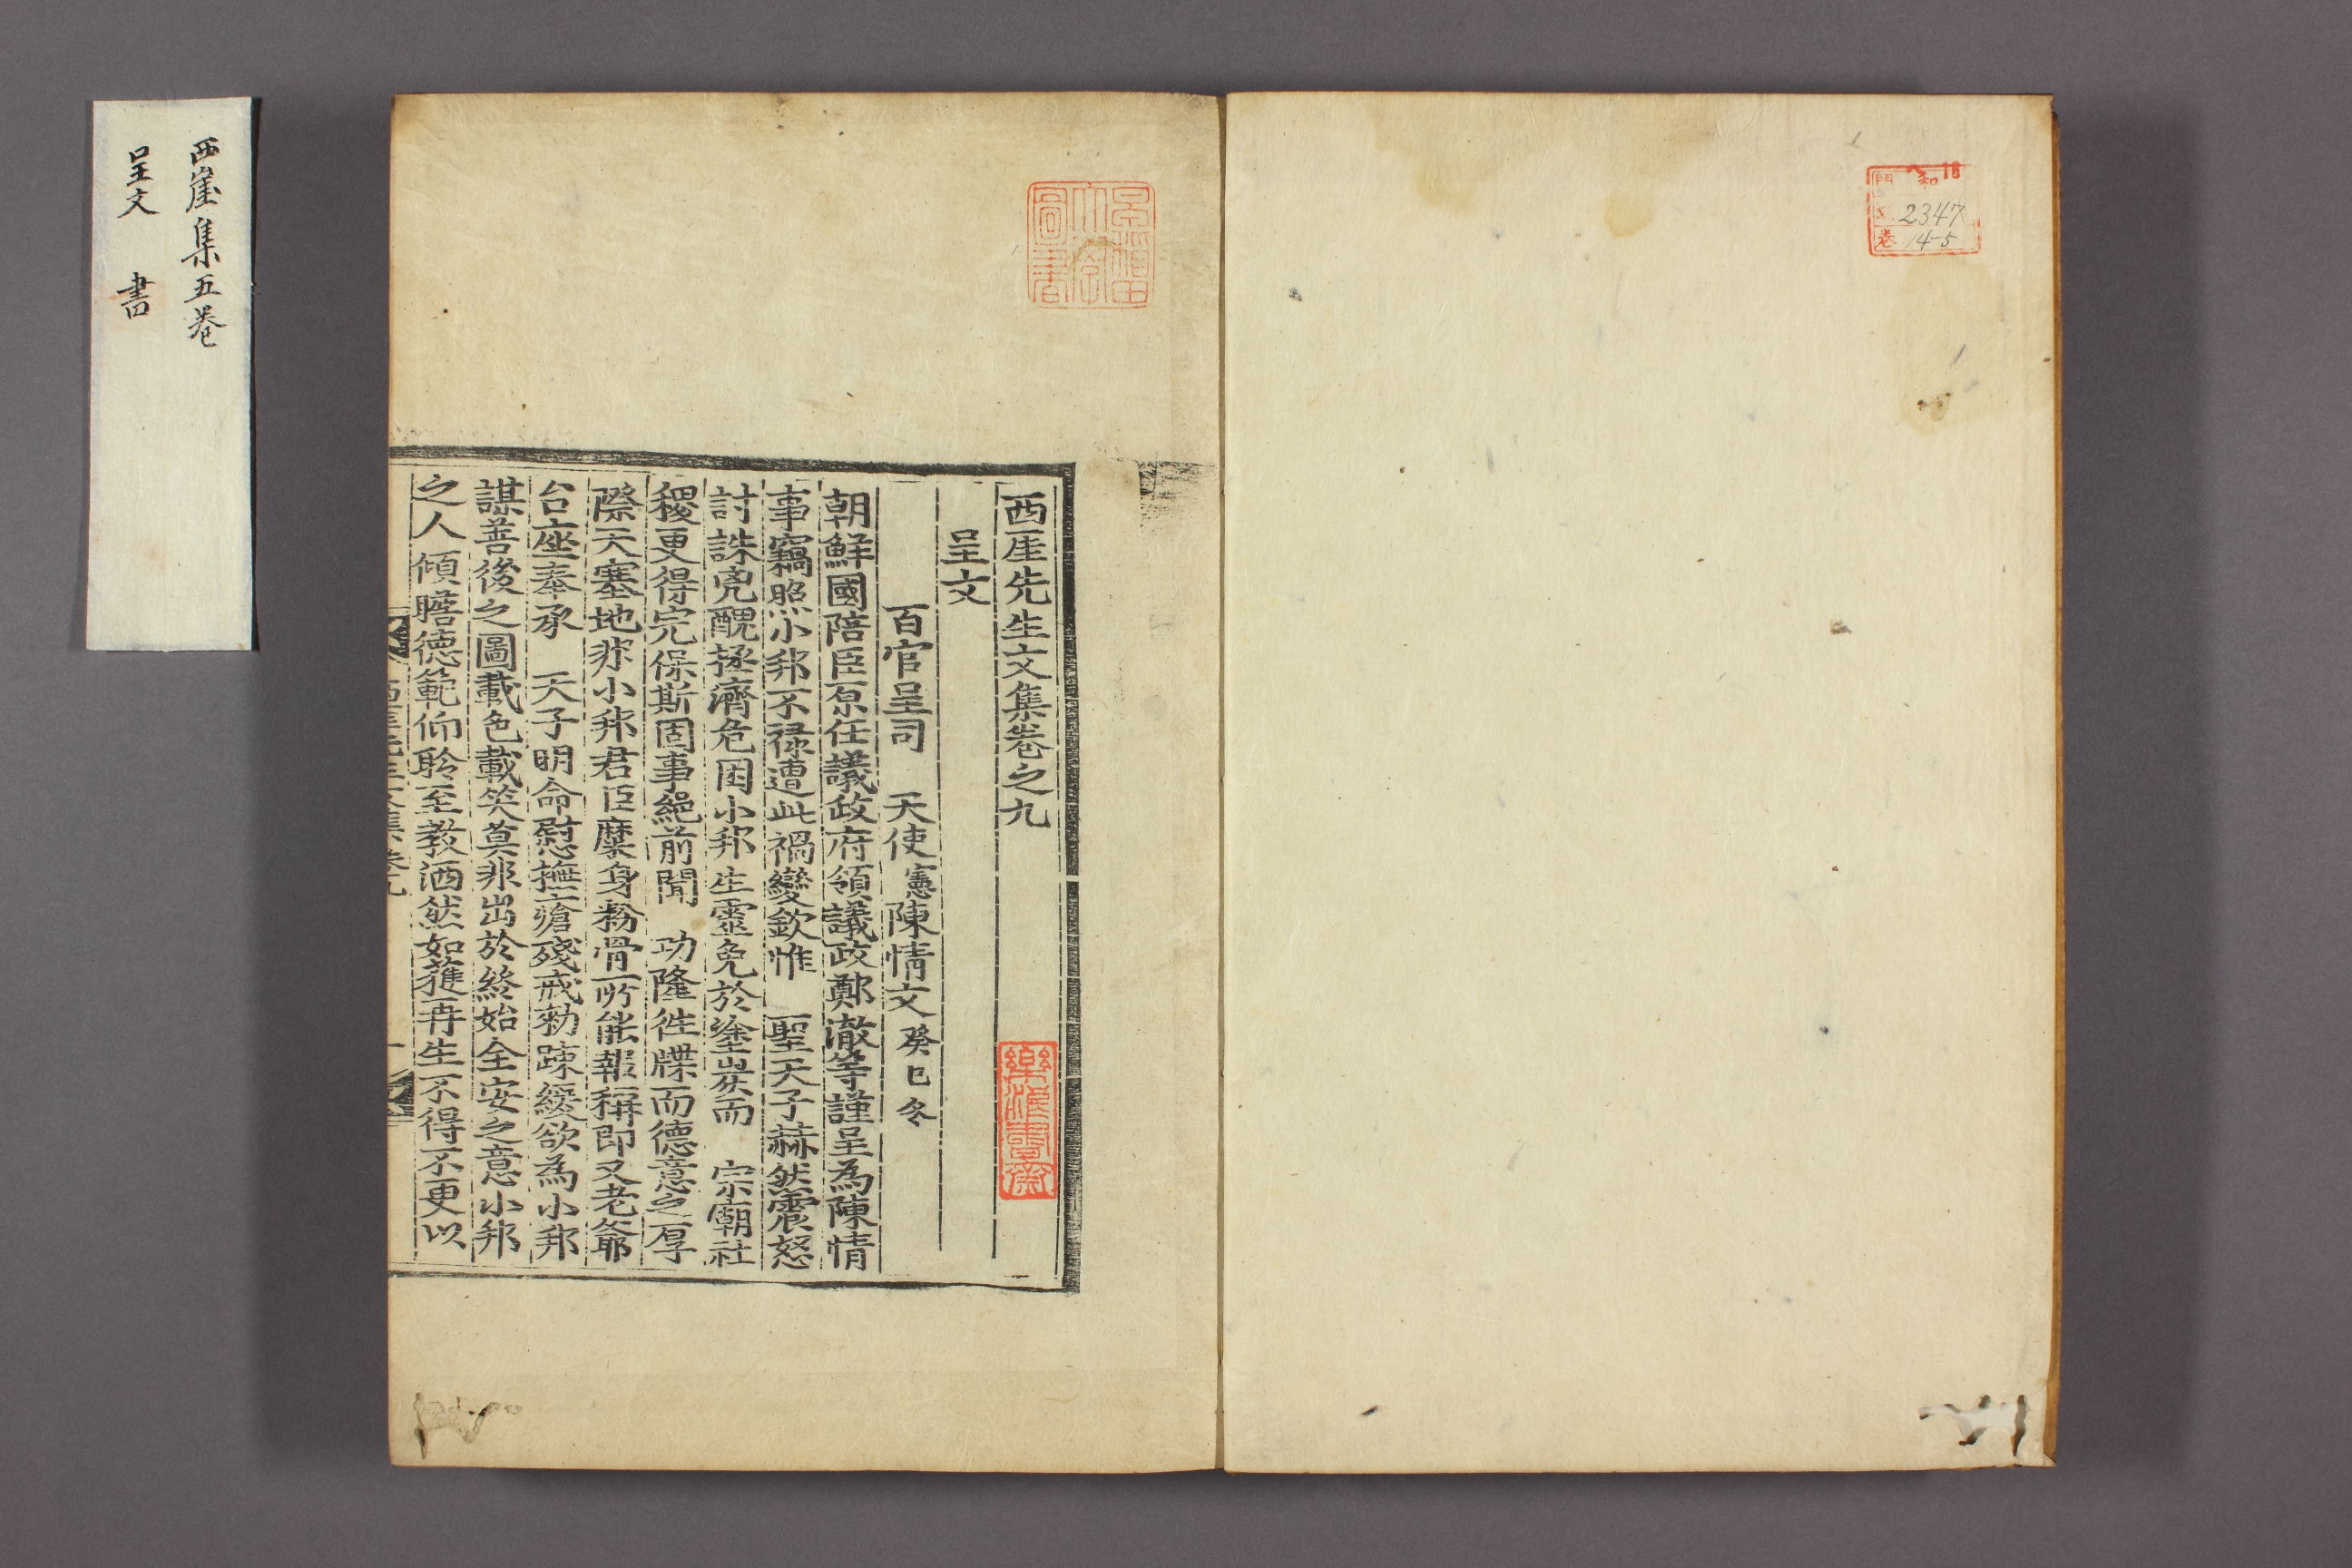 門 和 18
2347
卷 14-5
早稲田大學圖書
西厓先生文集卷之九
樂浪書齋
呈文
百官呈司 天使憲陳情文 癸巳冬
朝鮮國陪臣原任議政府領議政鄭澈等謹呈為陳情
事竊照小邦不祿遭此禍變欽惟 聖天子赫然震怒
討誅兇醜拯濟危困小邦生靈免於塗炭而 宗廟社
稷更得完保斯固事絕前聞 功隆徃牒而德意之厚
際天塞地非小邦君臣糜身粉骨所能報稱即又老爺
台座奉承 天子明命慰撫瘡殘戒勑踈緩欲為小邦
謀善後之圖載色載笑莫非出於終始全安之意小邦
之人傾瞻德範仰聆至教洒然如獲再生不得不更以
西崖集 五卷
呈文 書